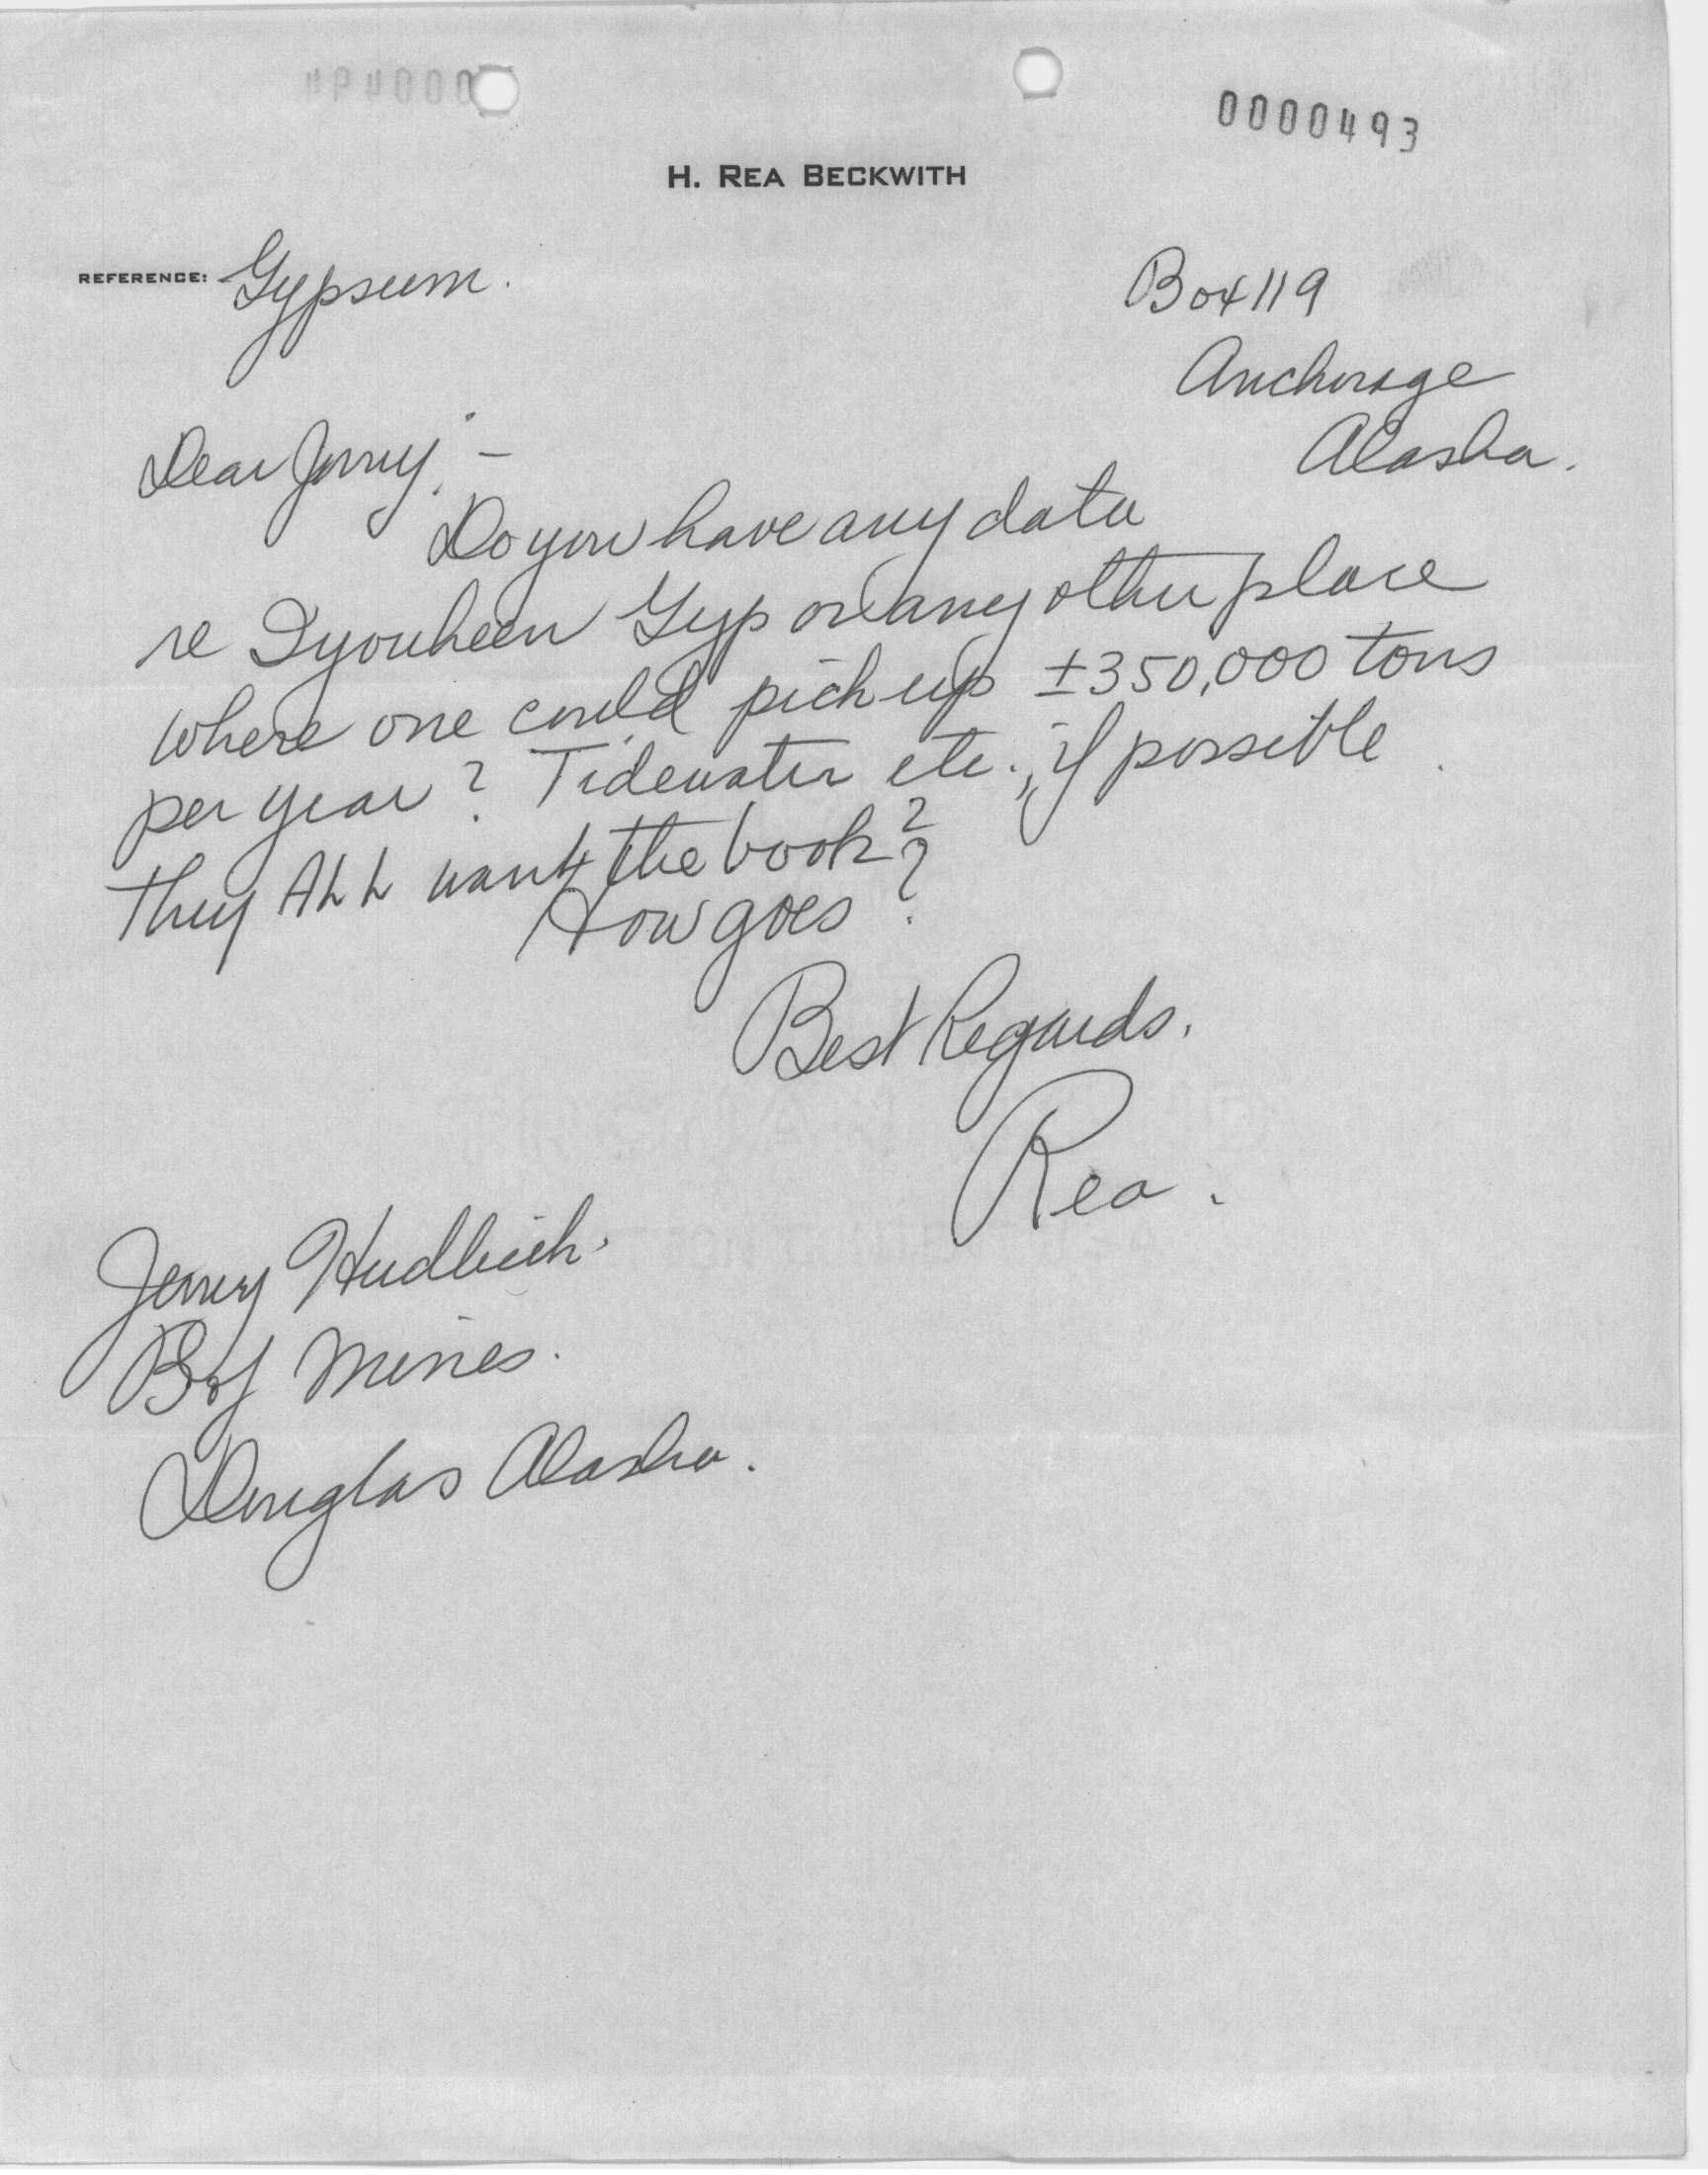 0000493
H. REA BECKWITH
REFERENCE: Gypsum.
Box 119
Anchorage
Alaska.
Dear Jerry: -
Do you have any data
re Iyoukeen Gyp or any other place
where one could pick up ±350,000 tons
per year? Tidewater etc., if possible.
They ALL want the book?
How goes?
Best Regards.
Rea.
Jerry
B of Mines.
Douglas Alaska.